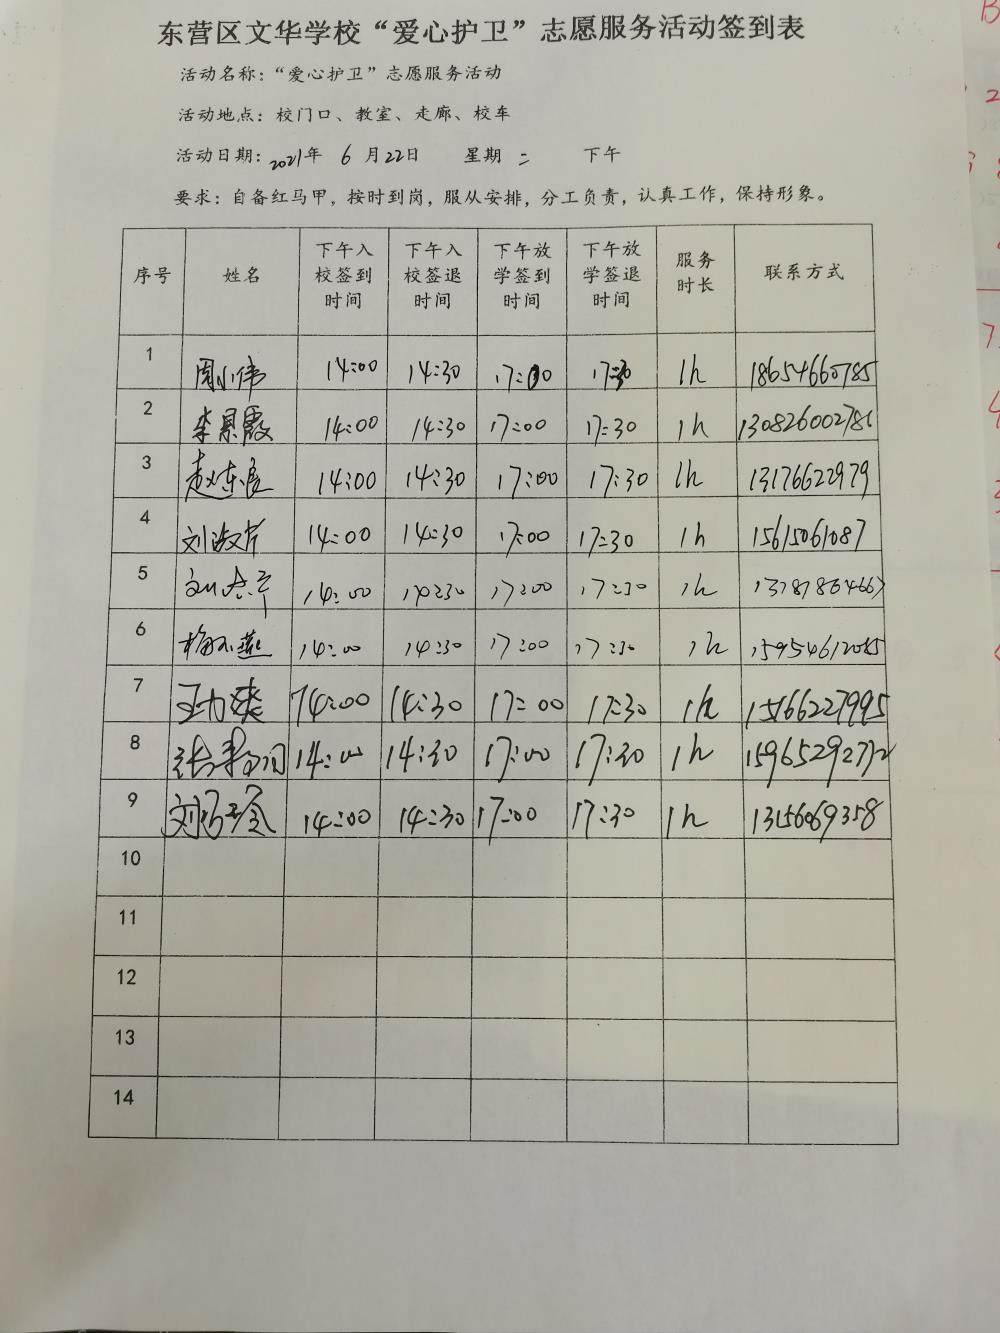 东营区文华学校“爱心护卫”志愿服务活动签到表
活动名称：“爱心护卫”志愿服务活动
活动地点：校门口、教室、走廊、校车
活动日期：2021年 6 月22日 星期 二 下午
要求：自备红马甲，按时到岗，服从安排，分工负责，认真工作，保持形象。
序号 姓名 下午入校签到时间 下午入校签退时间 下午放学签到时间 下午放学签退时间 服务时长 联系方式
1 周小伟 14:00 14:30 17:00 17:30 1h 18654660785
2 李景霞 14:00 14:30 17:00 17:30 1h
3 赵东良 14:00 14:30 17:00 17:30 1h 13176622979
4 刘海芹 14:00 14:30 17:00 17:30 1h 15615061087
5 14:00 14:30 17:00 17:30 1h
6 14:00 14:30 17:00 17:30 1h 15954612085
7 14:00 14:30 17:00 17:30 1h 15166227995
8 14:00 14:30 17:00 17:30 1h 15965292772
9 14:00 14:30 17:00 17:30 1h 13156069358
10
11
12
13
14